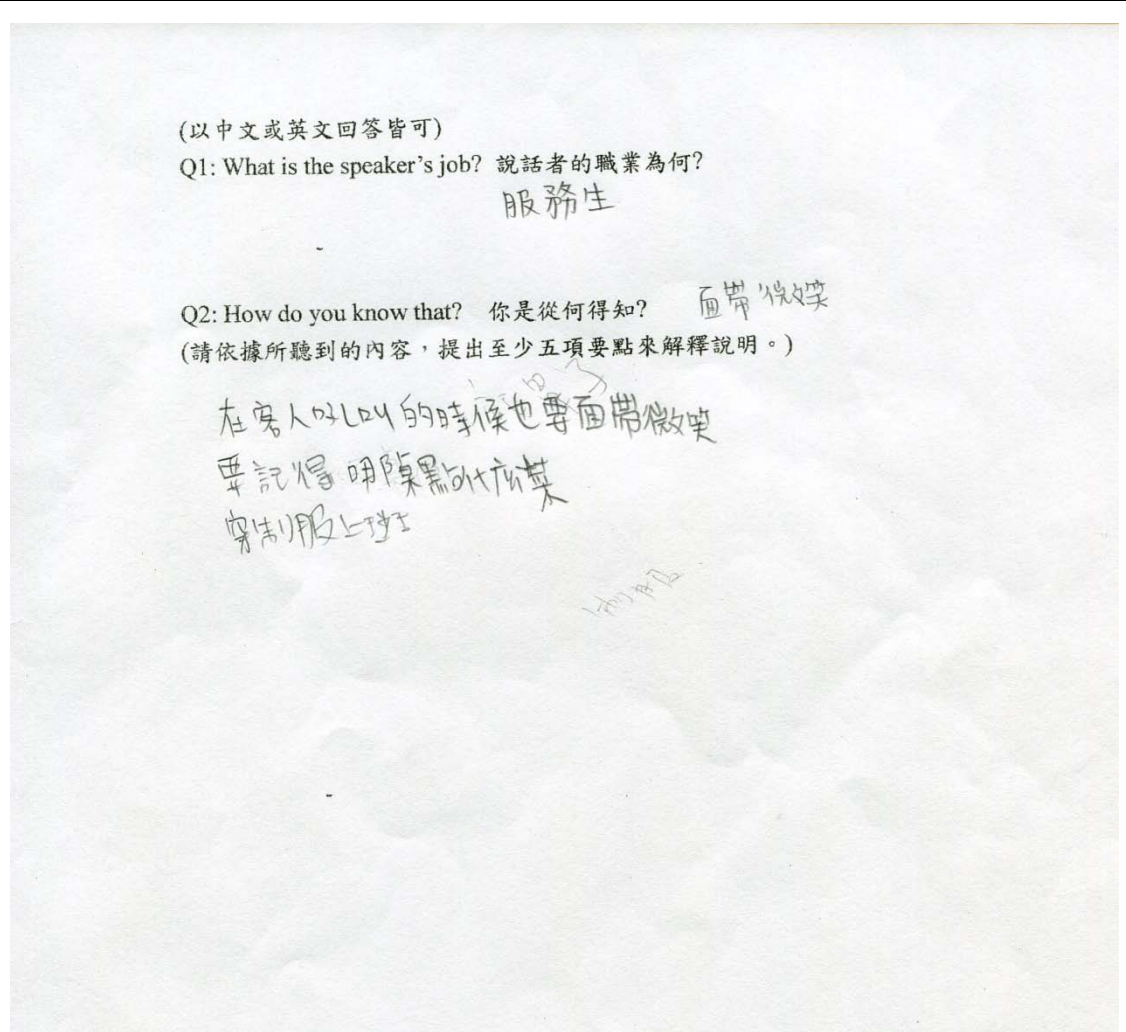 (以中文或英文回答皆可)
Q1: What is the speaker's job? 說話者的職業為何?
服務生
Q2: How do you know that? 你是從何得知? 面帶微笑
(請依據所聽到的內容,提出至少五項要點來解釋說明。)
在客人的時候也要面帶微笑
要記得點什麼菜
穿制服上班